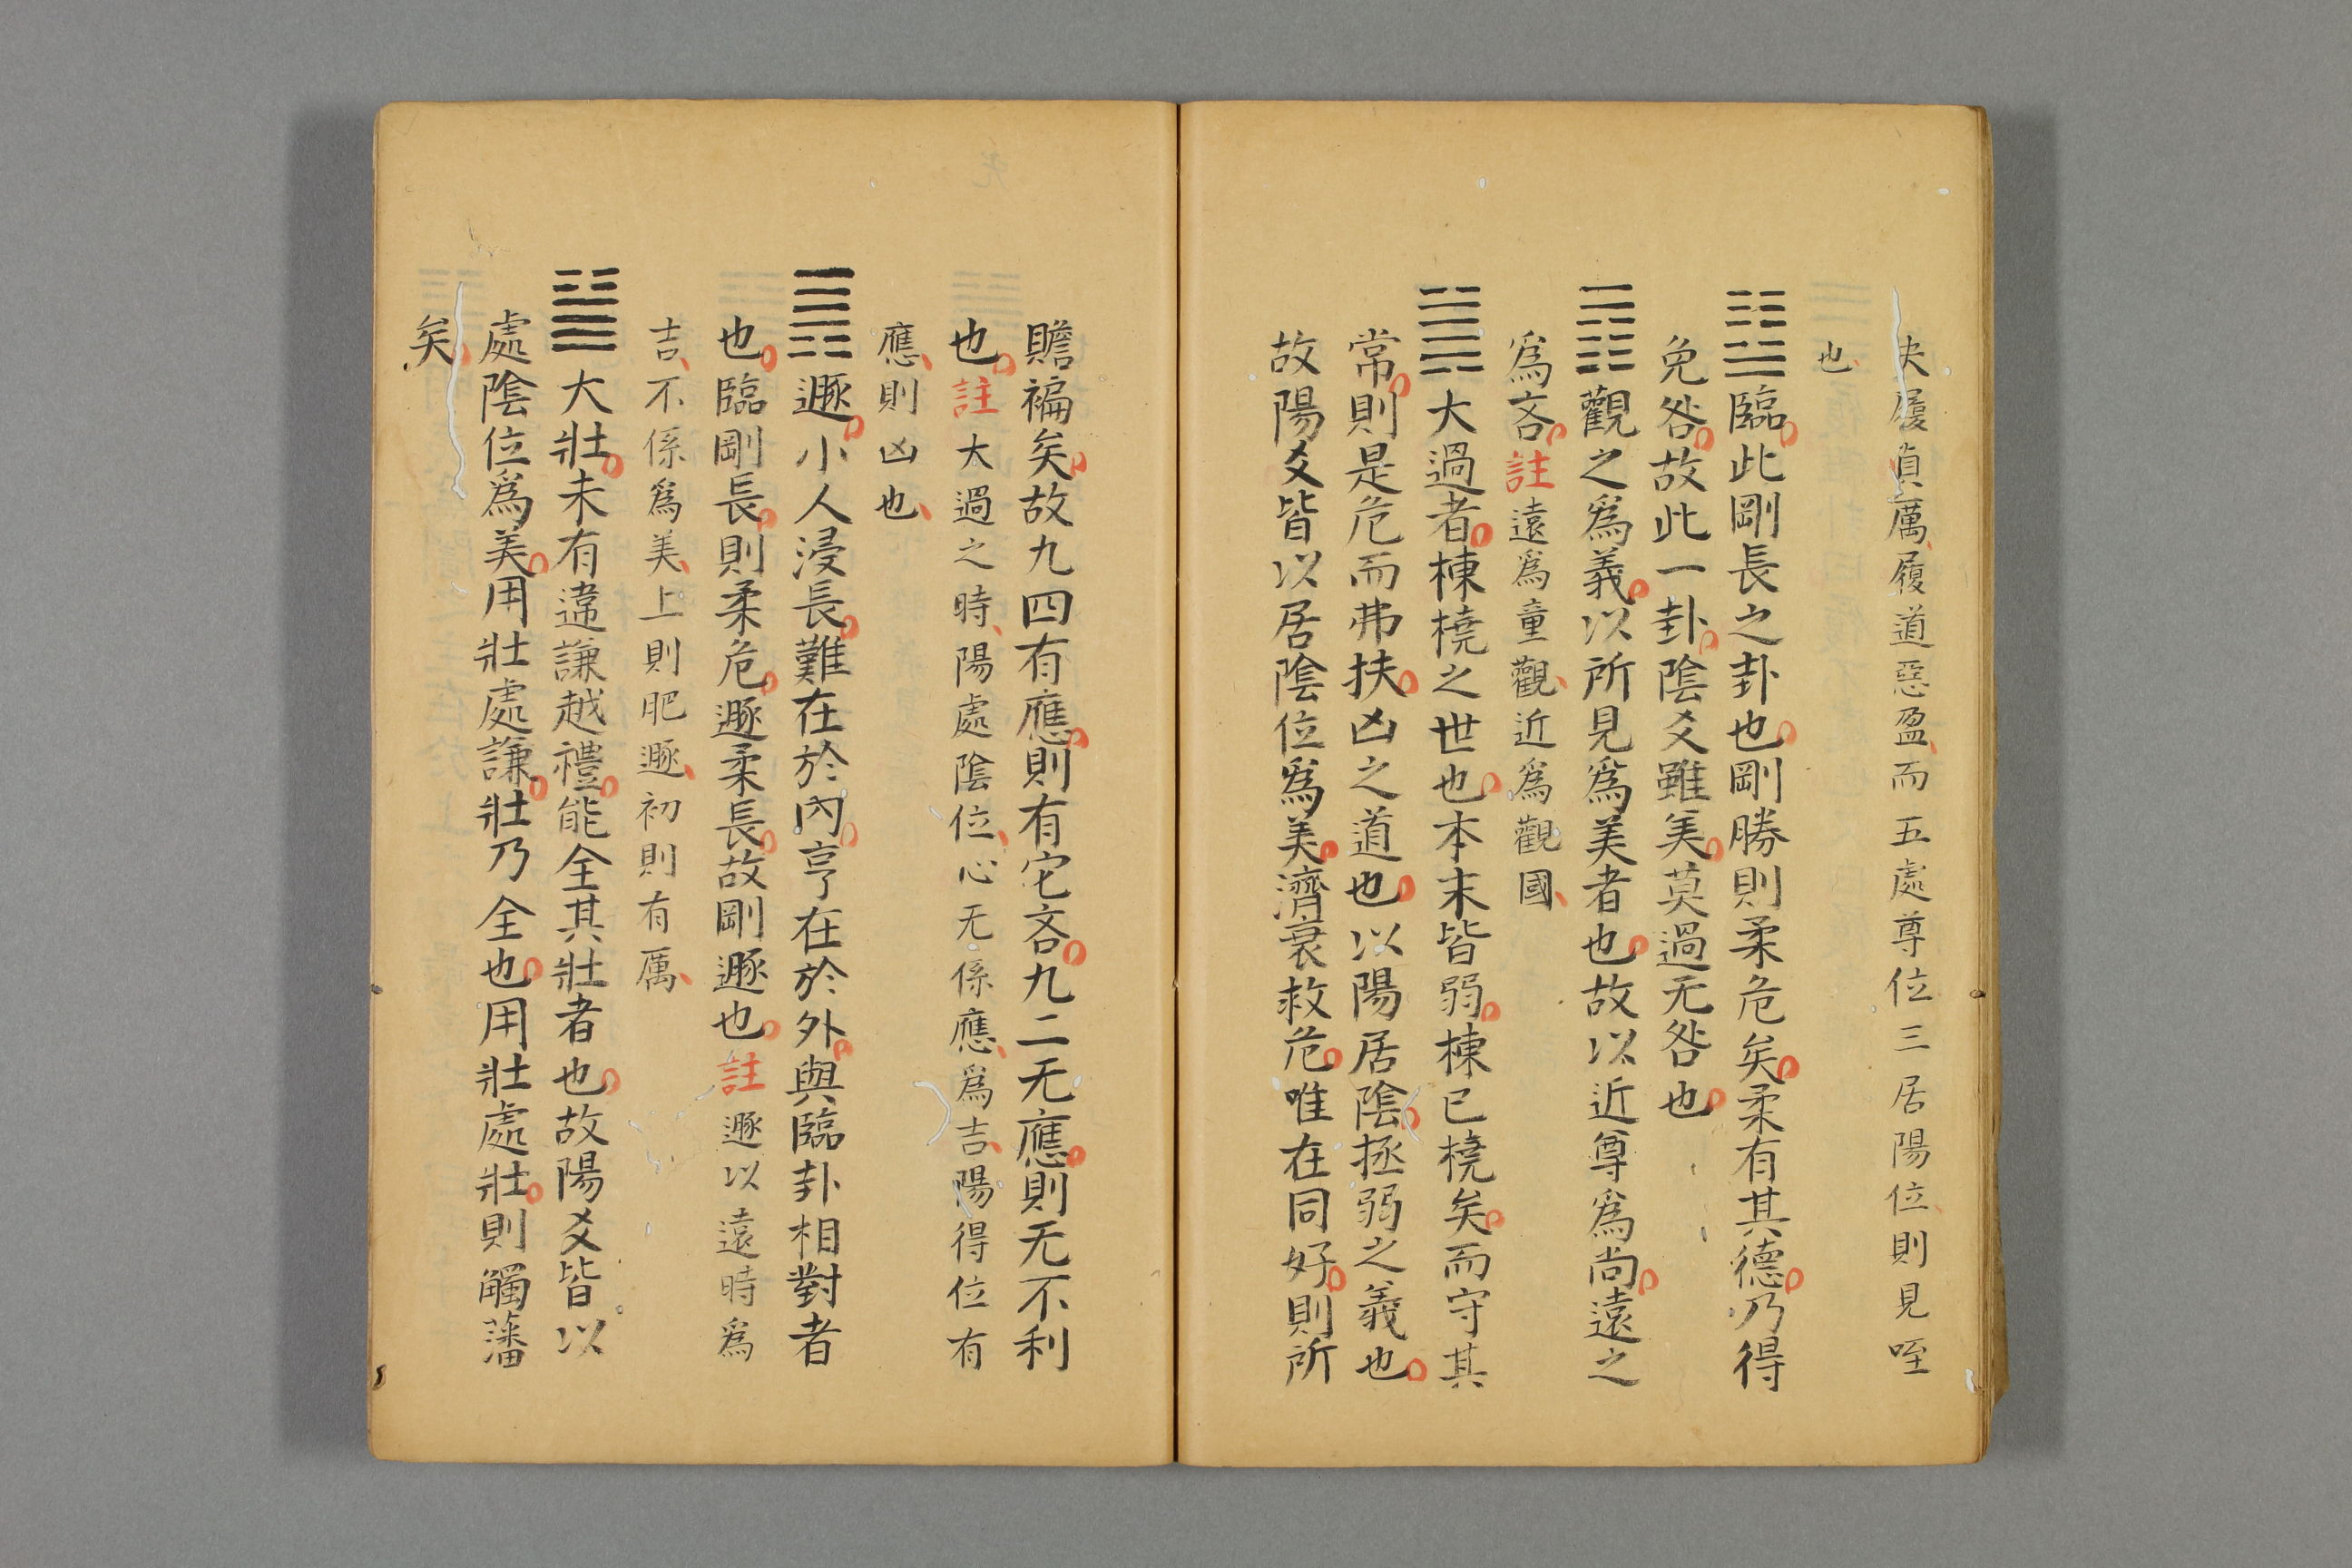 夬履貞厲履道惡盈而五處尊位三居陽位則見咥
也
䷒臨此剛長之卦也剛勝則柔危矣柔有其德乃得
免咎故此一卦陰爻雖美莫過无咎也
䷓觀之爲義以所見爲美者也故以近尊爲尚遠之
爲吝註遠爲童觀近爲觀國
䷛大過者棟橈之世也本末皆弱棟已橈矣而守其
常則是危而弗扶凶之道也以陽居陰拯弱之義也
故陽爻皆以居陰位爲美濟衰救危唯在同好則所
贍褊矣故九四有應則有它吝九二无應則无不利
也註大過之時陽處陰位心无係應爲吉陽得位有
應則凶也
䷠遯小人浸長難在於內亨在於外與臨卦相對者
也臨剛長則柔危遯柔長故剛遯也註遯以遠時爲
吉不係爲美上則肥遯初則有厲
䷡大壯未有違謙越禮能全其壯者也故陽爻皆以
處陰位爲美用壯處謙壯乃全也用壯處壯則觸藩
矣